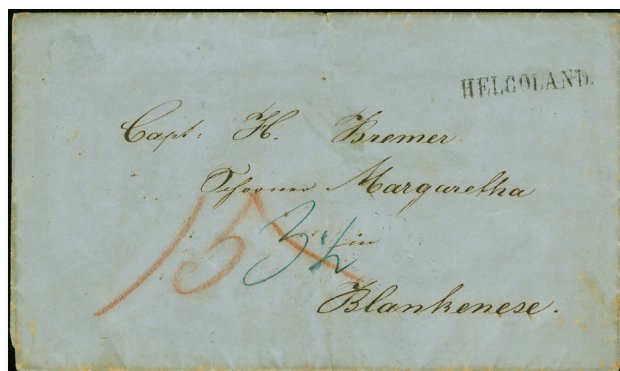 HELGOLAND.
Capt: H. Bremer
Schooner Margaretha
15 3½
in
Blankenese.